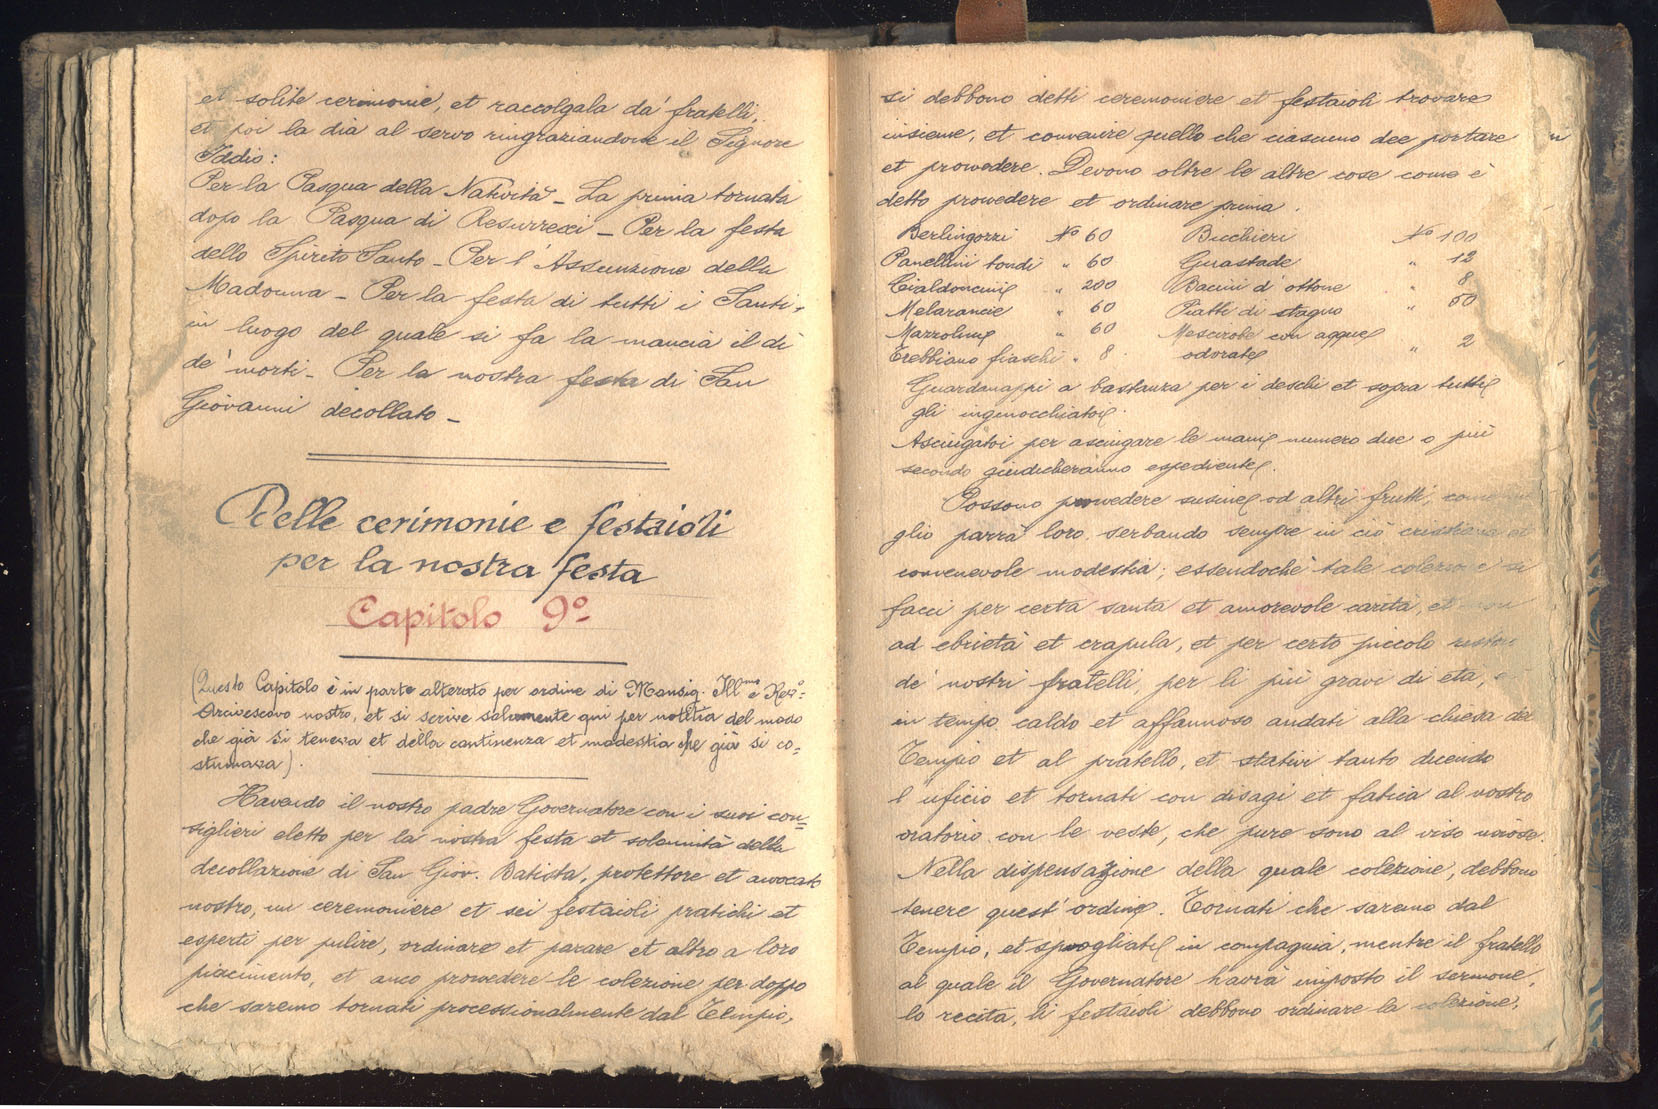 et solite cerimonie, et raccolgala da' fratelli,
et poi la dia al servo ringraziandone il Signore
Iddio:
Per la Pasqua della Natività - La prima tornata
dopo la Pasqua di Resurrexi - Per la festa
dello Spirito Santo - Per l'Assunzione della
Madonna - Per la festa di tutti i Santi -
in luogo del quale si fa la mancia il dì
de' morti - Per la nostra festa di San
Giovanni decollato -
Delle cerimonie e festaioli
per la nostra festa
Capitolo 9º
(Questo Capitolo è in parte alterato per ordine di Monsig. Ill.mo e Rev.º
Arcivescovo nostro, et si scrive solamente qui per notitia del modo
che già si teneva et della continenza et modestia che già si co=
stumava).
Havendo il nostro padre Governatore con i suoi con=
siglieri eletto per la nostra festa et solennità della
decollazione di San Giov. Batista, protettore et avvocato
nostro, un ceremoniere et sei festaioli pratichi et
esperti per pulire, ordinare et parare et altro a loro
piacimento, et anco provvedere le colezione per doppo
che saremo tornati processionalmente dal Tempio,
si debbono detti ceremoniere et festaioli trovare
insieme, et convenire quello che ciascuno dee portare
et provvedere. Devono oltre le altre cose come è
detto provvedere et ordinare prima.
Berlingozzi Nº 60 Bicchieri Nº 100
Panellini tondi " 60 Guastade " 12
Cialdoncini " 200 Bacini d'ottone " 8
Melarancie " 60 Piatti di stagno " 50
Mazzoline " 60 Mescirobe con acque
Trebbiano fiaschi " 8 odorate " 2
Guardanappi a bastanza per i deschi et sopra tutti
gli inginocchiatoi.
Asciugatoi per asciugare le mani numero due o più
secondo giudicheranno espediente.
Possono provvedere susine od altri frutti, come
glio parrà loro, serbando sempre in ciò cristiana et
convenevole modestia; essendochè tale colezione si
facci per certa santa et amorevole carità, et non
ad ebrietà et crapula, et per certo piccolo ristoro
de' nostri fratelli, per li più gravi di età,
in tempo caldo et affannoso andati alla chiesa del
Tempio et al pratello, et stativi tanto dicendo
l'uficio et tornati con disagi et fatica al nostro
oratorio con le veste, che pure sono al viso noiose.
Nella dispensazione della quale colezione, debbono
tenere quest'ordine. Tornati che saremo dal
Tempio, et spogliati in compagnia, mentre il fratello
al quale il Governatore havrà imposto il sermone,
lo recita, li festaioli debbono ordinare la colezione,